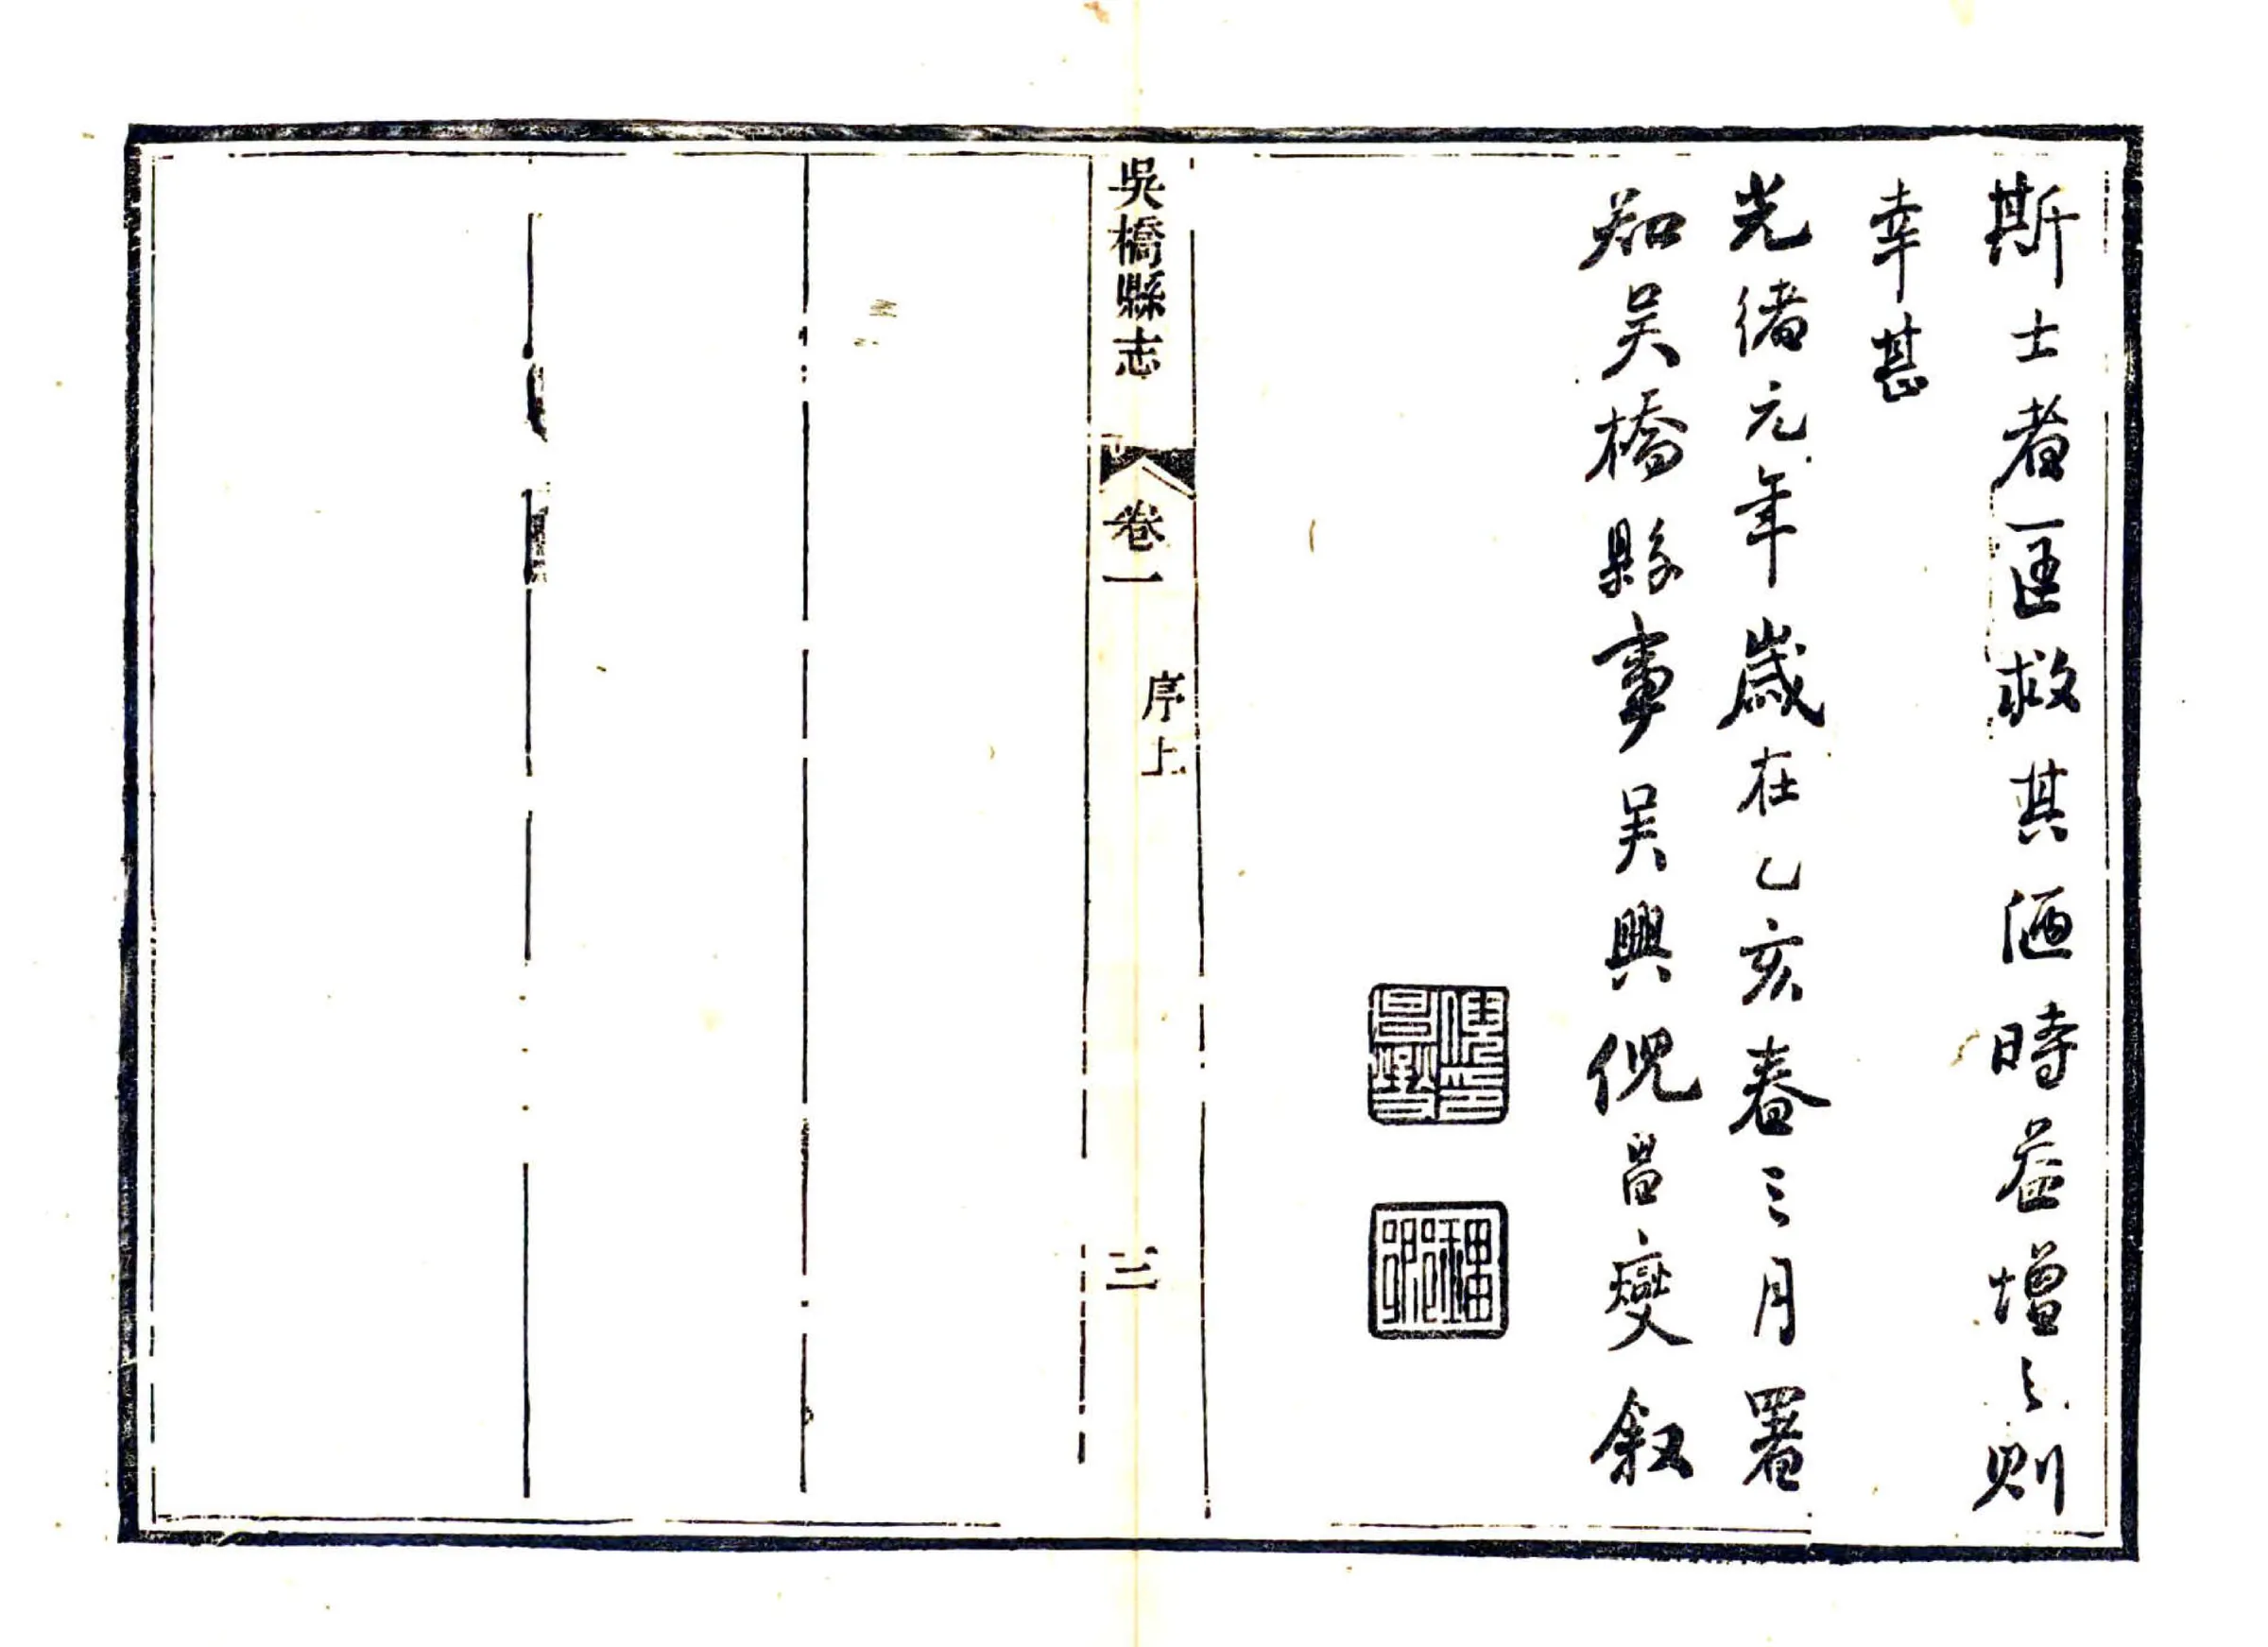 斯士者匡救其陋時益增之則
幸甚
光緒元年歲在乙亥春三月署
知吳橋縣事吳興倪昌燮叙
倪印昌燮
吳橋縣志
卷一
序上
三